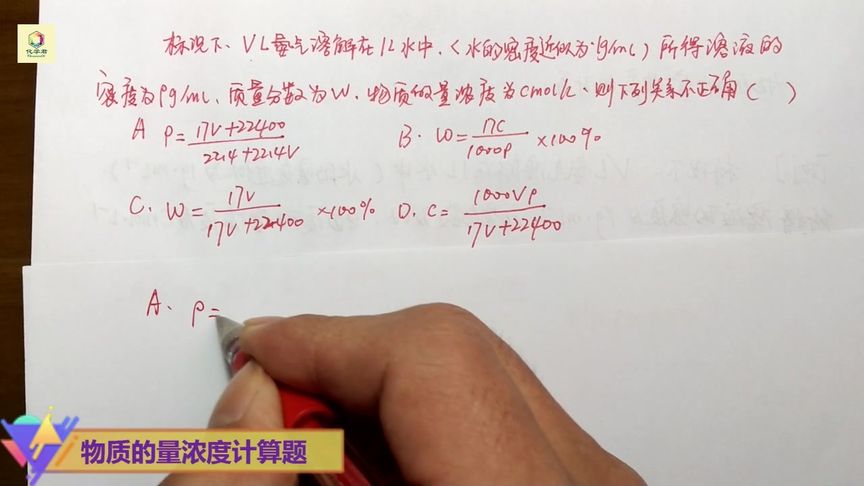 化学君
标况下、VL氨气溶解在1L水中.(水的密度近似为1g/mL)所得溶液的
密度为ρg/mL,质量分数为W.物质的量浓度为cmol/L.则下列关系不正确( )
A ρ=17V+22400/22.4+22.4V
B. W=17C/1000ρ×100%
C. W=17V/17V+22400×100%
D. C=1000Vρ/17V+22400
A. ρ=
物质的量浓度计算题